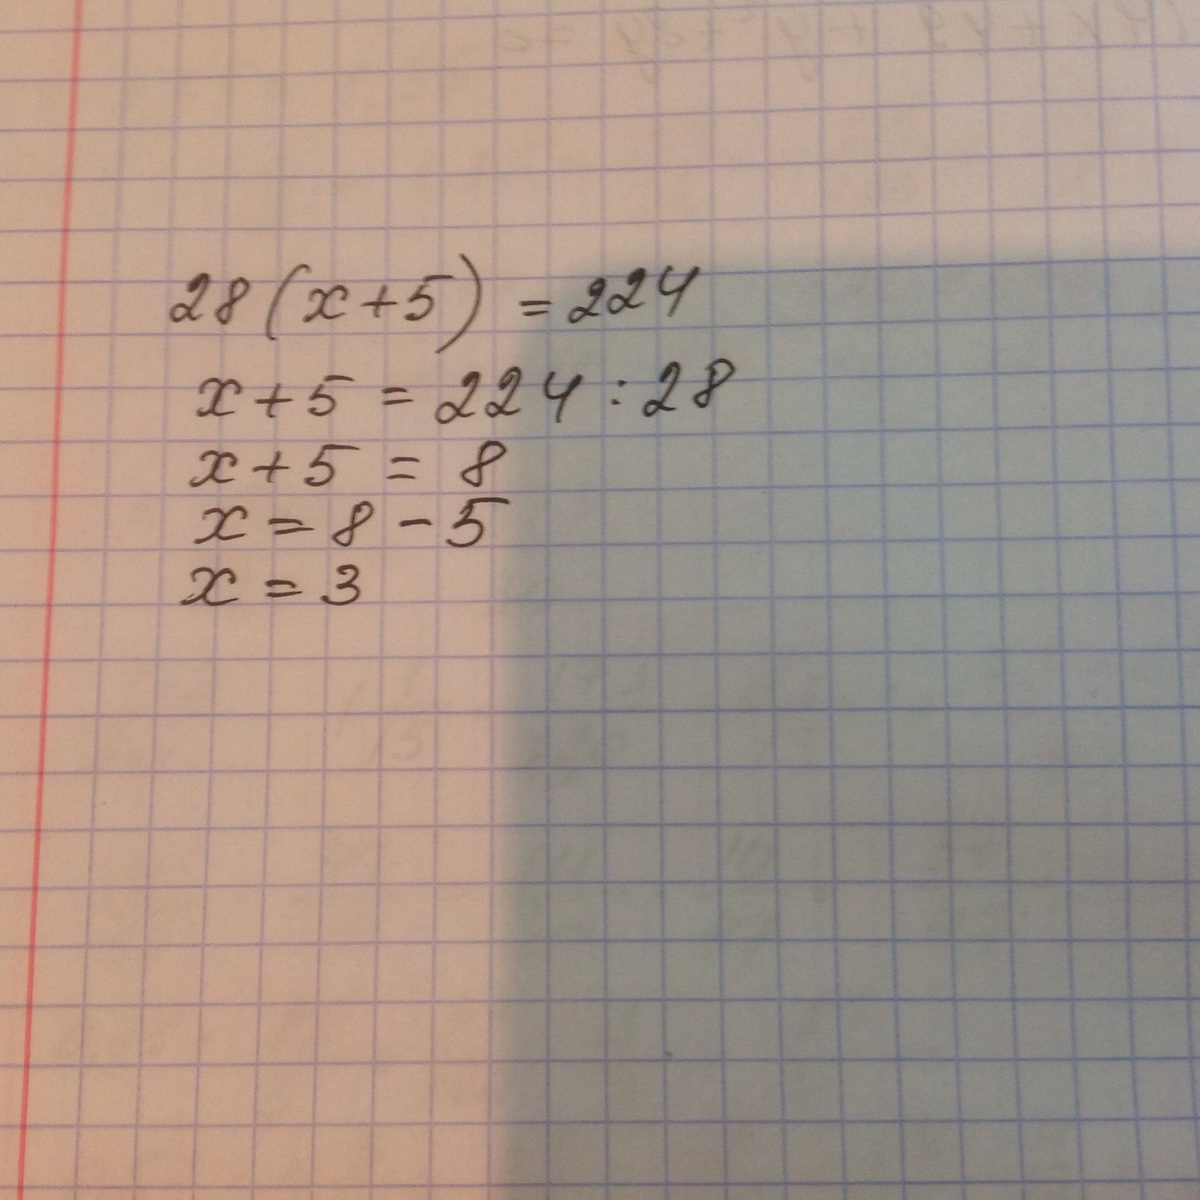 28(x+5) = 224
x+5 = 224 : 28
x+5 = 8
x = 8 - 5
x = 3